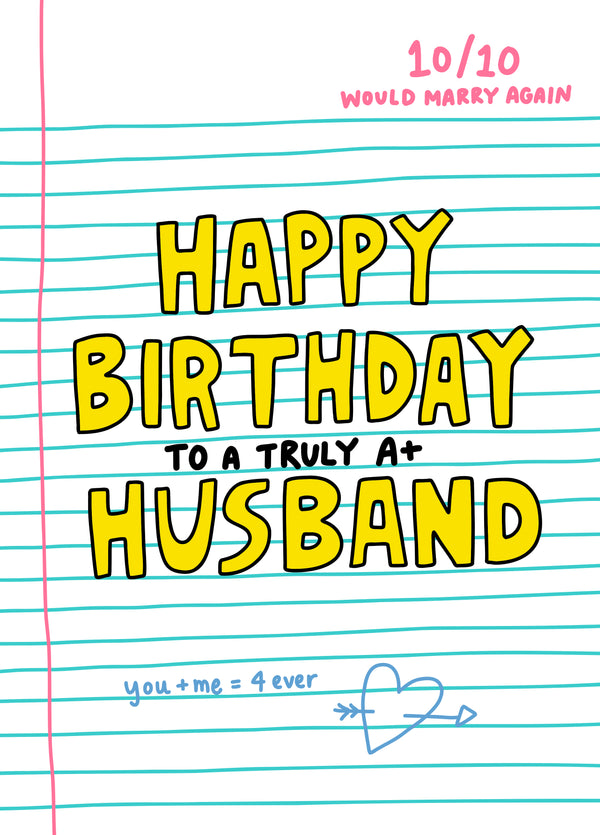 10/10
WOULD MARRY AGAIN
HAPPY
BIRTHDAY
TO A TRULY A+
HUSBAND
you + me = 4 ever